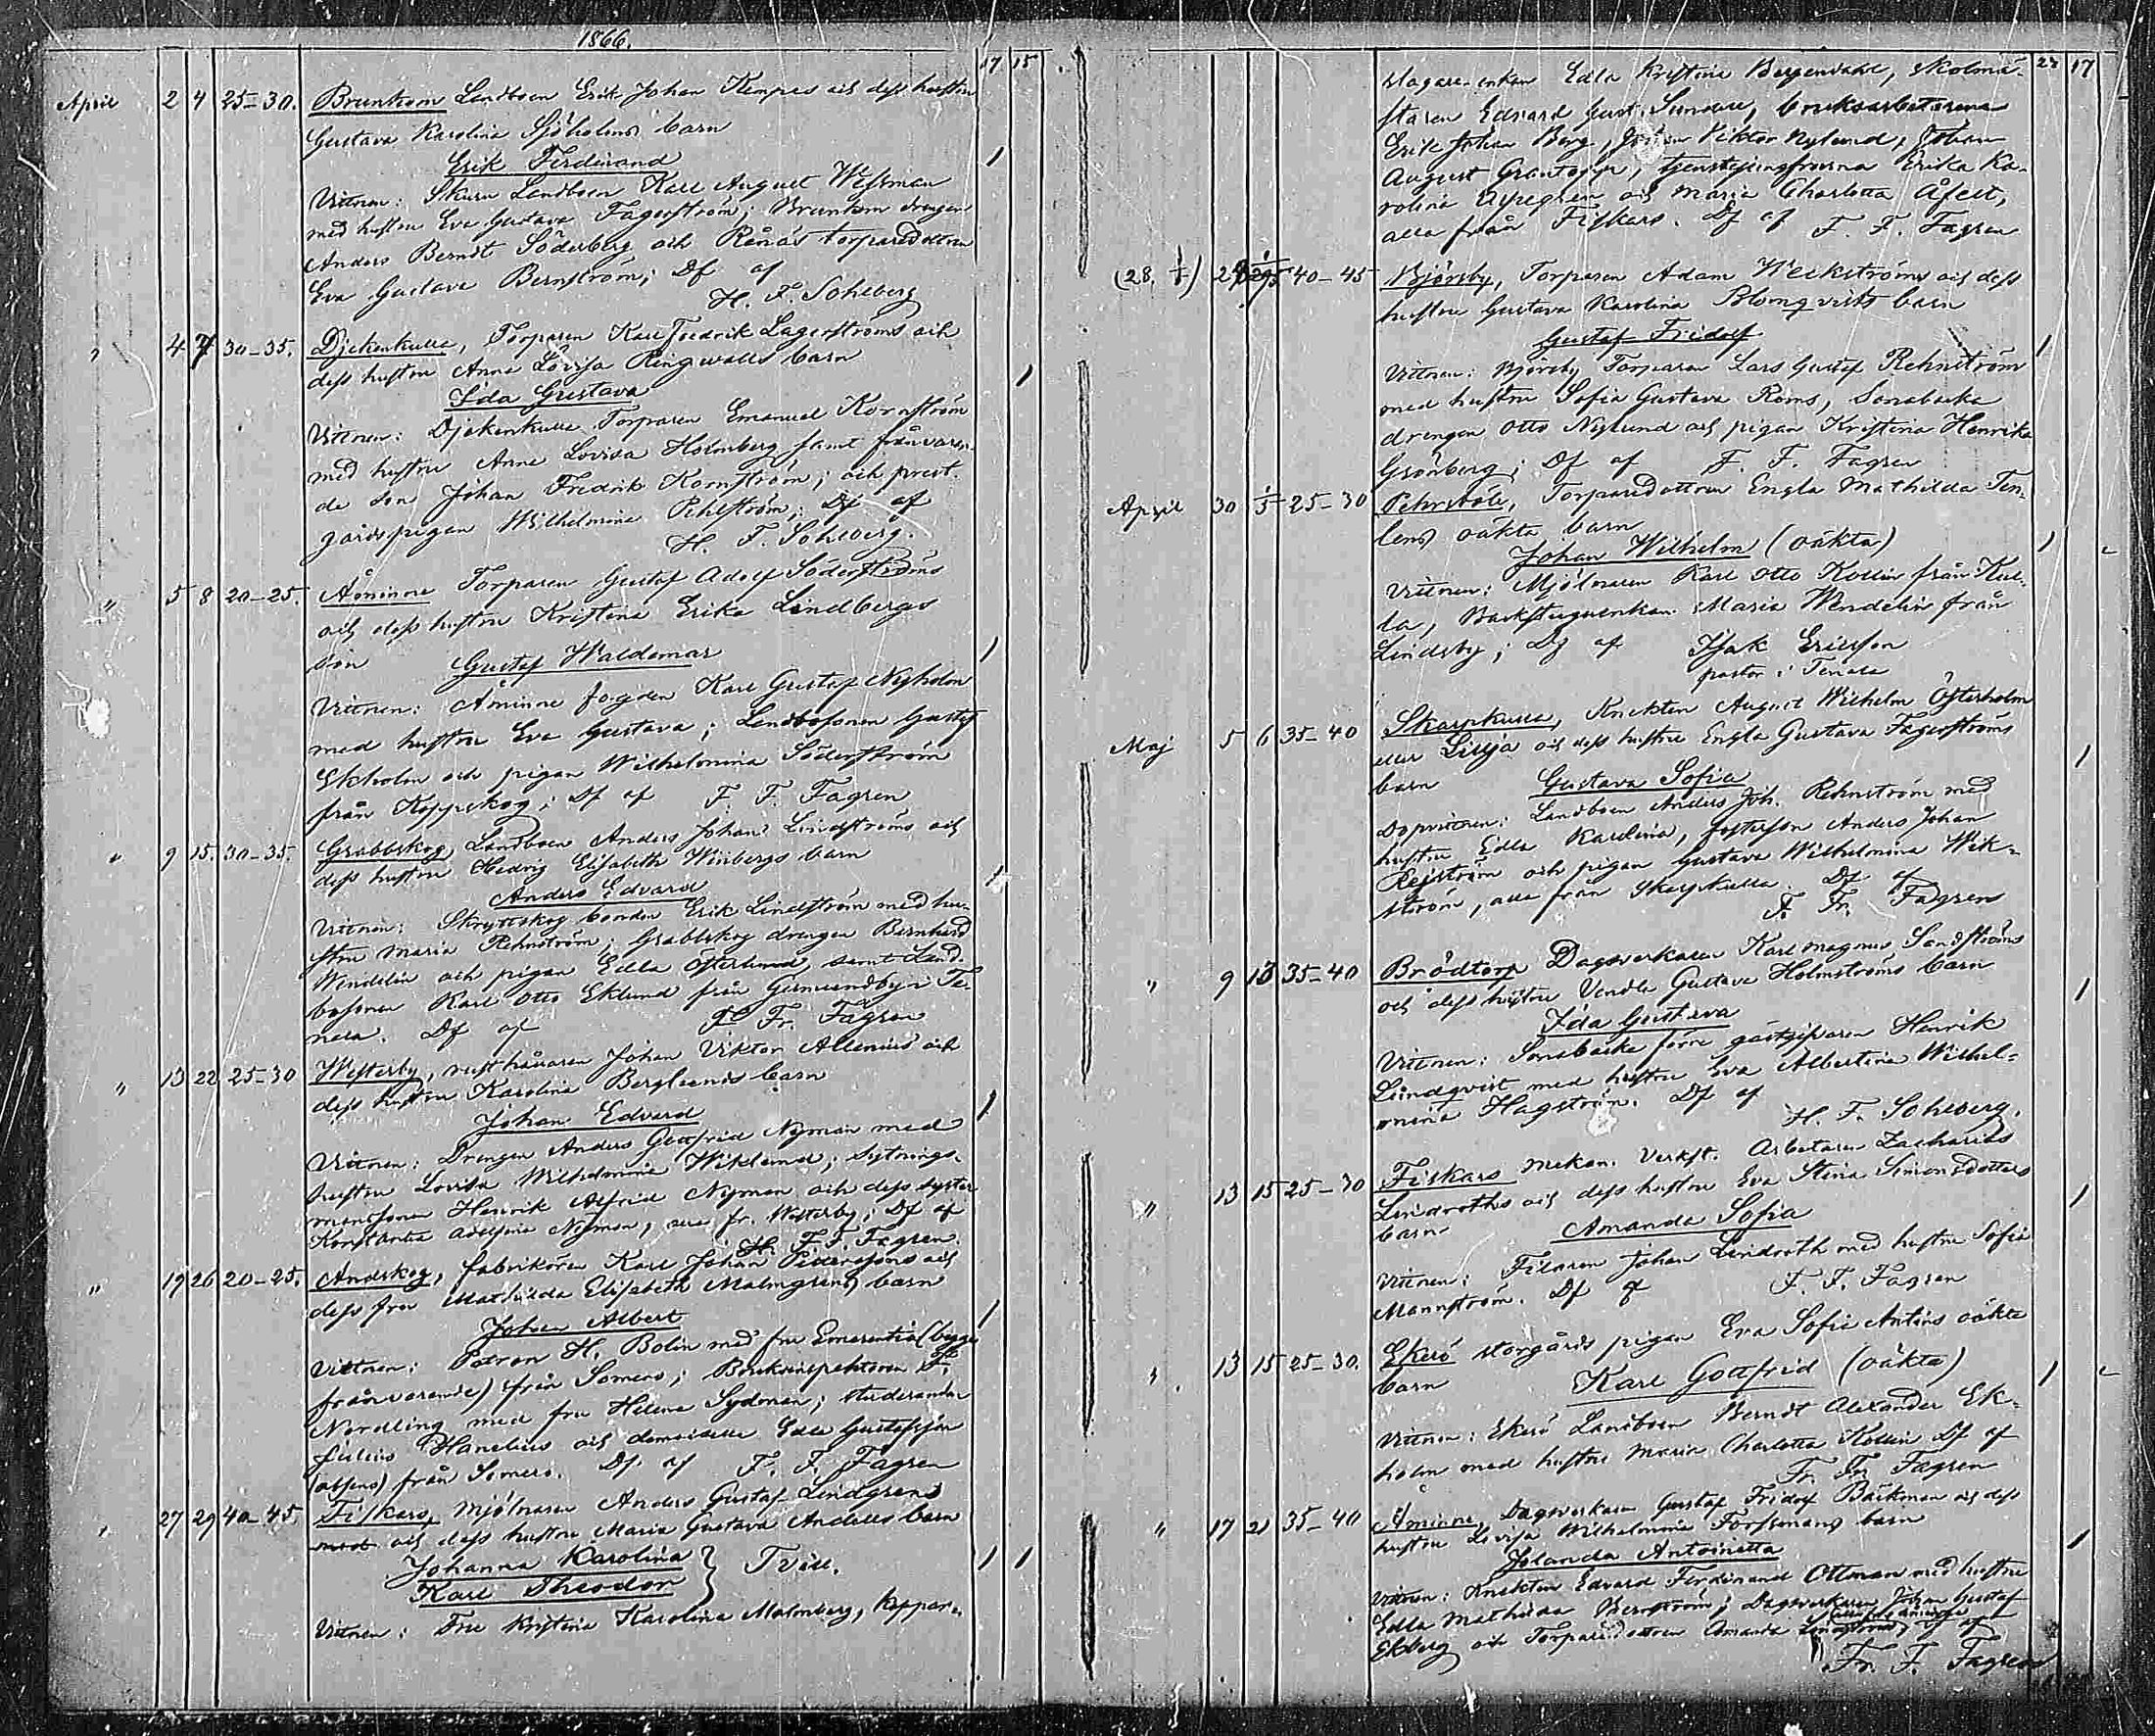 1866.
17 15
April 2 4 25–30. Brunkom Landboen Erik Johan Kempes och dess hustru
Gustava Karolina Sjöholms barn
Erik Ferdinand 1
Vittnen: Skuru Landboen Karl August Westman
med hustru Eva Gustava Fagerström; Brunkom drengen
Anders Berndt Söderberg och Rånäs torparedottren
Eva Gustava Bernström; Df af
H. F. Sohlberg
" 4 7 30–35. Djekenkulla, Torparen Karl Fredrik Lagerströms och
dess hustru Anna Lovisa Ringwalls barn
Ida Gustava 1
Vittnen: Djekenkulla Torparen Emanuel Kornström
med hustru Anna Lovisa Holmberg samt frånvaran-
de son Johan Fredrik Kornström; och prest-
gårdspigan Wilhelmina Pihlström; Df af
H. F. Sohlberg.
" 5 8 20–25. Åminne Torparen Gustaf Adolf Söderströms
och dess hustru Kristina Erika Lindbergs
son Gustaf Waldemar 1
Vittnen: Åminne fogden Karl Gustaf Nyholm
med hustru Eva Gustava; Landbosonen Gustaf
Ekholm och pigan Wilhelmina Söderström
från Koppskog; Df af F. F. Fagren
" 9 15. 30–35. Grabbskog Landboen Anders Johan Lindströms och
dess hustru Hedvig Elisabeth Winbergs barn
Anders Edvard 1
Vittnen: Skrittskog bonden Erik Lindström med hu-
stru Maria Rehnström; Grabbskog drengen Bernhard
Wendelin och pigan Edla Österlund, samt Land-
bosonen Karl Otto Eklund från Gunnarsby i Te-
nala. Df af F. Fr. Fagren
" 13 22 25–30 Westerby, rusthållaren Johan Viktor Allenius och
dess hustru Karolina Berglunds barn
Johan Edvard 1
Vittnen: Drengen Anders Gottfrid Nyman med
hustru Lovisa Wilhelmina Wiklund; Sytnings-
mansonen Henrik Alfrid Nyman och dess syster
Konstantia Adolfina Nyman, alla fr. Westerby; Df af
F. F. Fagren.
" 19 26 20–25. Andskog, fabrikören Karl Johan Petterssons och
dess fru Mathilda Elisabeth Malmgrens barn
Johan Albert 1
Vittnen: Patron H. Bolin med fru Emerentia (begge
frånvarande) från Somero; Bruksinspektoren F.
Nordling med fru Helena Sydman; studeranden
Julius Hanelius och demoiselle Edla Gustafsson
(absens) från Somero. Df. af F. F. Fagren
" 27 29 40–45. Fiskars, Mjölnaren Anders Gustaf Lindgrens
och dess hustru Maria Gustava Andells barn
Johanna Karolina } Tvill. 1 1
Karl Theodor
Vittnen: Fru Kristina Karolina Malmberg, koppar-
27 17
slagare-enkan Edla Kristina Bergendahl, skolmä-
staren Edvard Gust. Sundell, bruksarbetarena
Erik Johan Berg, Johan Viktor Nylund, Johan
August Grantoff, tjenstejungfrurna Erika Ka-
rolina och Maria Charlotta Åfelt,
alla från Fiskars. Df af F. F. Fagren
(28. 1/5) 40–45 Björsby, Torparen Adam Weckströms och dess
hustru Gustava Karolina Blomqvists barn
Gustaf Fridolf 1
Vittnen: Björsby Torparen Lars Gustaf Rehnström
med hustru Sofia Gustava Roms, Sonabacka
drengen Otto Nylund och pigan Kristina Henrika
Grönberg; Df af F. F. Fagren
April 30 1/5 25–30 Pehrsböle, Torparedottren Engla Mathilda Ten-
lens oäkta barn
Johan Wilhelm (oäkta) 1
Vittnen: Mjölnaren Karl Otto Kollin från Kul-
la, Backstuguenkan Maria Wendelin från
Lindsby; Df af Isak Ericsson
pastor i Tenala
Maj 5 6 35–40 Skarpkulla, Knekten August Wilhelm Österholm
eller Lilja och dess hustru Engla Gustava Fagerströms
barn Gustava Sofia 1
Dopvittnen: Landboen Anders Joh. Rehnström med
hustru Edla Karolina, fosterson Anders Johan
Rejström och pigan Gustava Wilhelmina Wik-
ström, alla från Skarpkulla. Df af
F. Fr. Fagren
" 9 13 35–40 Brödtorp Dagsverkaren Karl Magnus Sandströms
och dess hustru Vendla Gustava Holmströms barn
Ida Gustava 1
Vittnen: Sonabacka förre gästgifvaren Henrik
Lindqvist med hustru Eva Albertina Wilhel-
mina Hagström. Df af
H. F. Sohlberg.
" 13 15 25–30 Fiskars mekan. Verkst. Arbetaren Zacharias
Lindroths och dess hustru Eva Stina Simonsdotters
barn Amanda Sofia 1
Vittnen: Filaren Johan Lindroth med hustru Sofia
Mannström. Df af F. F. Fagren
" 13 15 25–30. Ekerö storgårds pigan Eva Sofia Antins oäkta
barn Karl Gottfrid (oäkta) 1
Vittnen: Ekerö Landboen Berndt Alexander Ek-
holm med hustru Maria Charlotta Kollin Df af
Fr. Fr. Fagren
" 17 21 35–40 Åminne, Dagsverkaren Gustaf Fridolf Bäckman och dess
hustru Lovisa Wilhelmina Forssmans barn
Jolanda Antoinetta 1
Vittnen: Knekten Edvard Ferdinand Ottman med hustru
Edla Mathilda Bernström; Dagsverkaren Johan Gustaf
Ekberg och Torparedottren Amanda Df af
Fr. F. Fagren